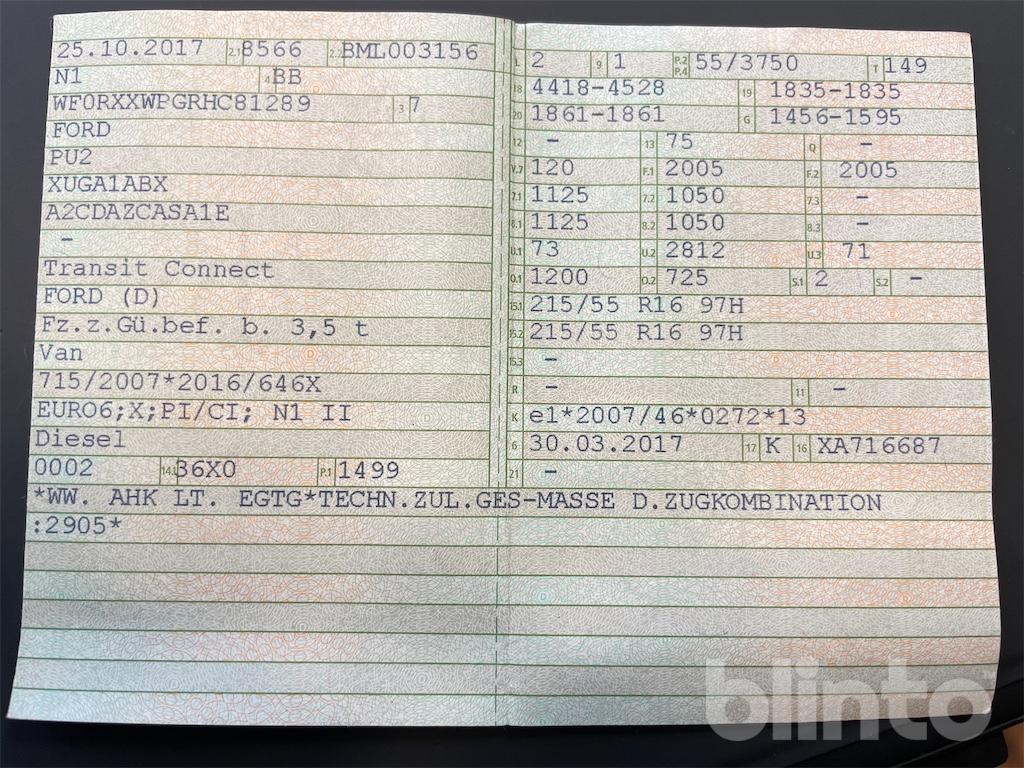 25.10.2017 2.1 8566 2.2 BML003156
N1 4 BB
WF0RXXWPGRHC81289 3 7
FORD
PU2
XUGA1ABX
A2CDAZCASA1E
–
Transit Connect
FORD (D)
Fz.z.Gü.bef. b. 3,5 t
Van
715/2007*2016/646X
EURO6;X;PI/CI; N1 II
Diesel
0002 14.1 36X0 P.1 1499
L 2 9 1 P.2 P.4 55/3750 T 149
18 4418-4528 19 1835-1835
20 1861-1861 G 1456-1595
12 – 13 75 Q –
V.7 120 F.1 2005 F.2 2005
7.1 1125 7.2 1050 7.3 –
8.1 1125 8.2 1050 8.3 –
U.1 73 U.2 2812 U.3 71
O.1 1200 O.2 725 S.1 2 S.2 –
15.1 215/55 R16 97H
15.2 215/55 R16 97H
15.3 –
R – 11 –
K e1*2007/46*0272*13
6 30.03.2017 17 K 16 XA716687
21 –
*WW. AHK LT. EGTG*TECHN.ZUL.GES-MASSE D.ZUGKOMBINATION
:2905*
blinto